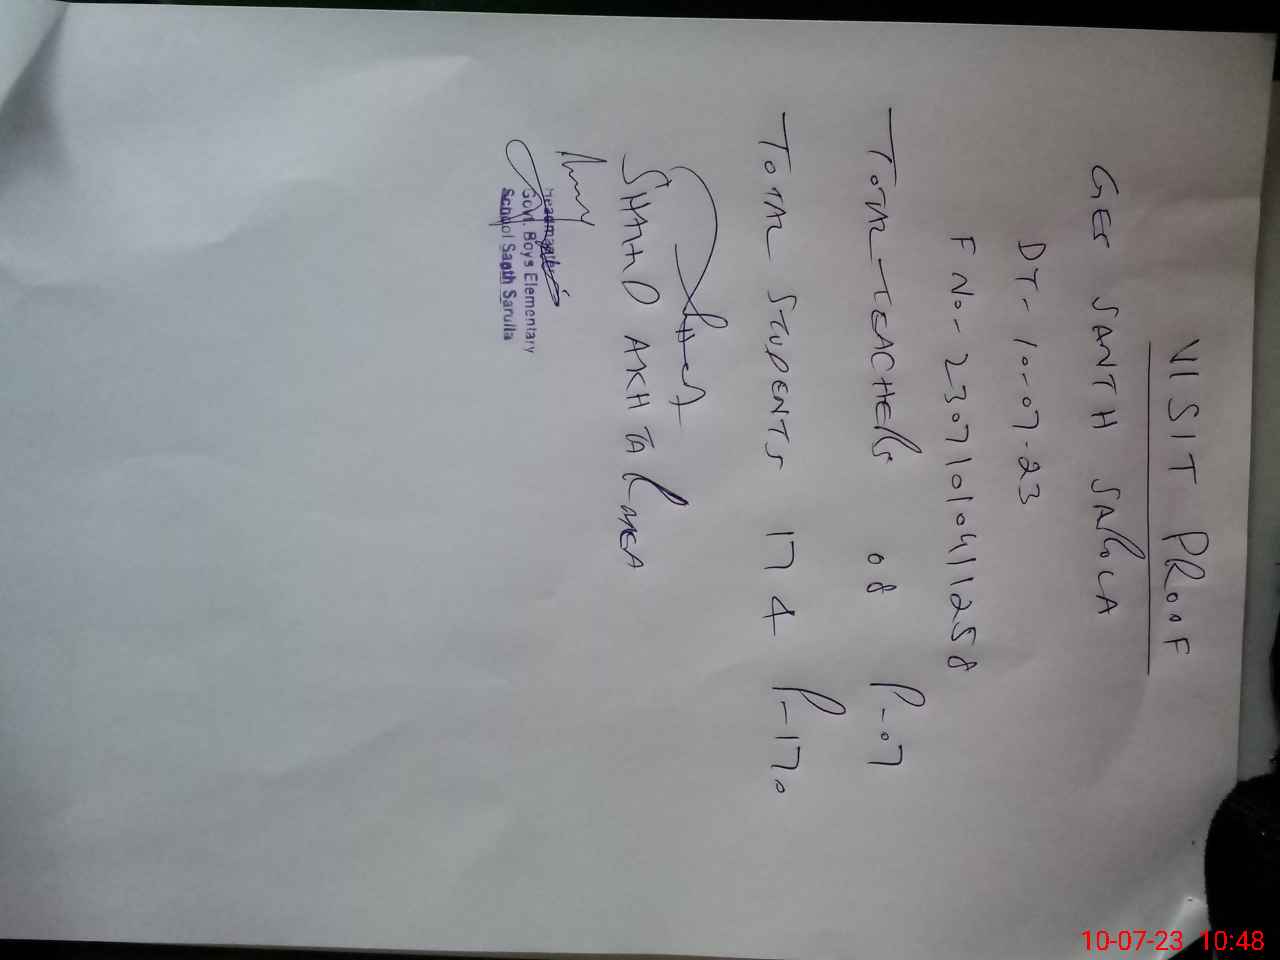 VISIT PROOF
GES SANTH SAROLA
DT- 10-07-23
F No- 2307101041258
TOTAL TEACHERS 08 P-07
TOTAL STUDENTS 174 P-170
SHAHD AKHTAR MEA
Headmaster
Govt. Boys Elementary
School Santh Sarulla
10-07-23 10:48